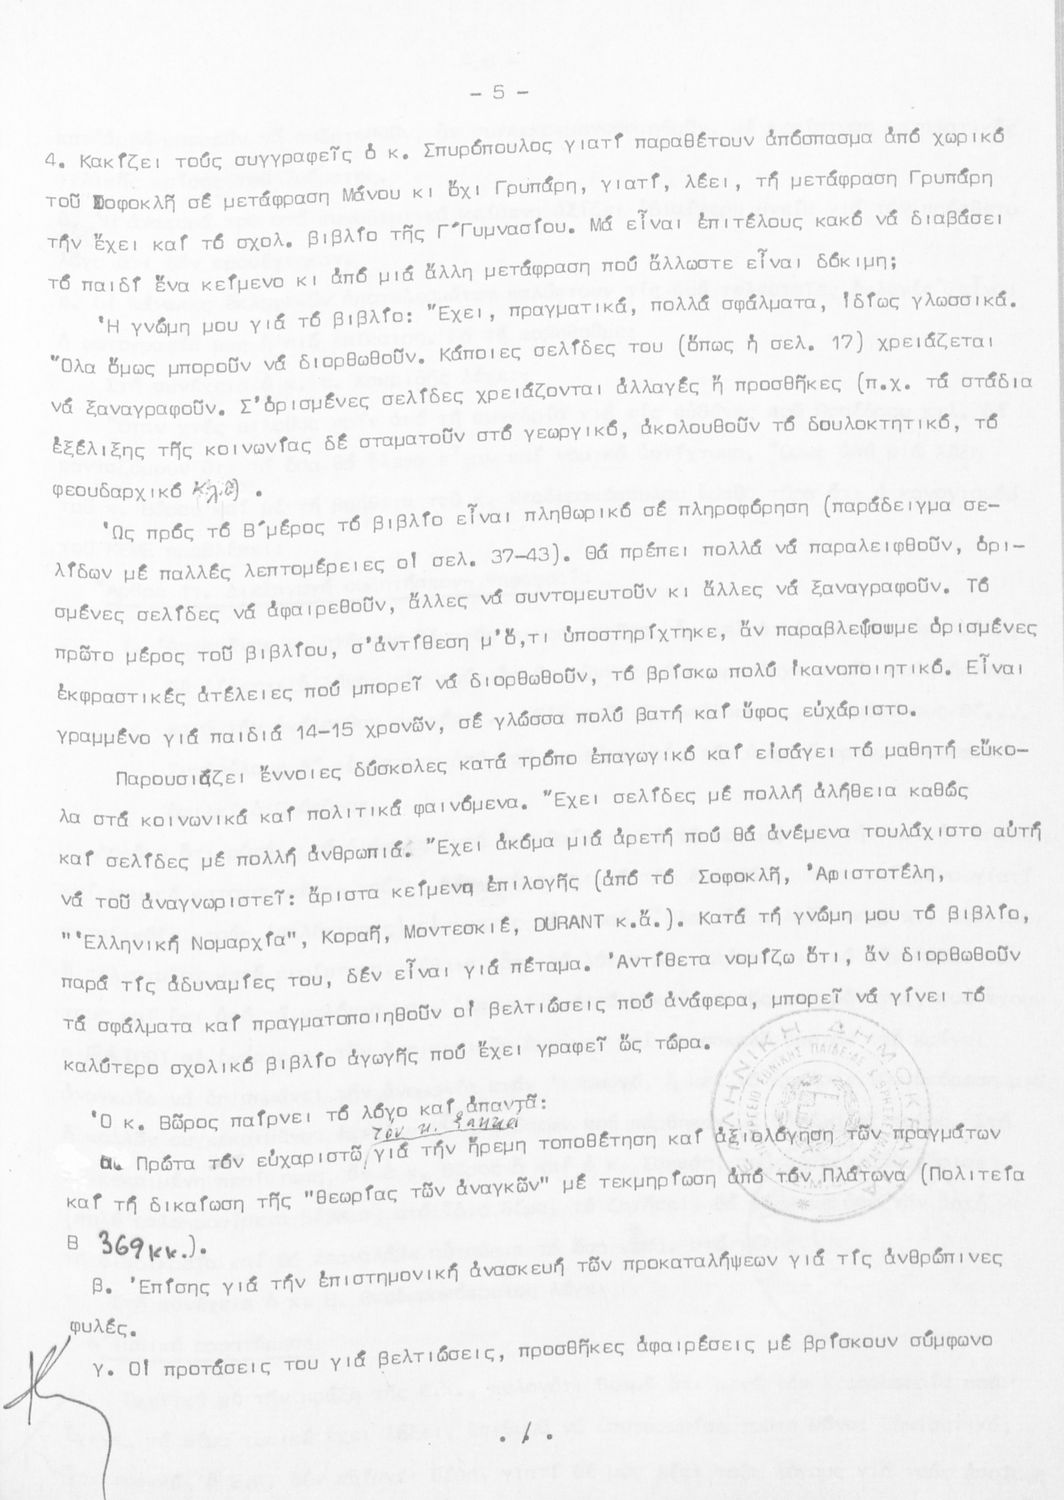 - 5 -
4. Κακίζει τούς συγγραφεῖς ὁ κ. Σπυρόπουλος γιατί παραθέτουν ἀπόσπασμα ἀπό χωρικό
τοῦ Σοφοκλῆ σέ μετάφραση Μάνου κι ὄχι Γρυπάρη, γιατί, λέει, τή μετάφραση Γρυπάρη
τήν ἔχει καί τό σχολ. βιβλίο τῆς Γ΄Γυμνασίου. Μά εἶναι ἐπιτέλους κακό νά διαβάσει
τό παιδί ἕνα κείμενο κι ἀπό μιά ἄλλη μετάφραση πού ἄλλωστε εἶναι δόκιμη;
Ἡ γνώμη μου γιά τό βιβλίο: Ἔχει, πραγματικά, πολλά σφάλματα, ἰδίως γλωσσικά.
Ὅλα ὅμως μποροῦν νά διορθωθοῦν. Κάποιες σελίδες του (ὅπως ἡ σελ. 17) χρειάζεται
νά ξαναγραφοῦν. Σ'ὁρισμένες σελίδες χρειάζονται ἀλλαγές ἤ προσθῆκες (π.χ. τά στάδια
ἐξέλιξης τῆς κοινωνίας δέ σταματοῦν στό γεωργικό, ἀκολουθοῦν τό δουλοκτητικό, τό
φεουδαρχικό κ.λ.π) .
Ὡς πρός τό Β΄μέρος τό βιβλίο εἶναι πληθωρικό σέ πληροφόρηση (παράδειγμα σε-
λίδων μέ παλλές λεπτομέρειες οἱ σελ. 37-43). Θά πρέπει πολλά νά παραλειφθοῦν, ὁρι-
σμένες σελίδες νά ἀφαιρεθοῦν, ἄλλες νά συντομευτοῦν κι ἄλλες νά ξαναγραφοῦν. Τό
πρῶτο μέρος τοῦ βιβλίου, σ'ἀντίθεση μ'ὅ,τι ὑποστηρίχτηκε, ἄν παραβλέψουμε ὁρισμένες
ἐκφραστικές ἀτέλειες πού μπορεῖ νά διορθωθοῦν, τό βρίσκω πολύ ἱκανοποιητικό. Εἶναι
γραμμένο γιά παιδιά 14-15 χρονῶν, σέ γλώσσα πολύ βατή καί ὕφος εὐχάριστο.
Παρουσιάζει ἔννοιες δύσκολες κατά τρόπο ἐπαγωγικό καί εἰσάγει τό μαθητή εὔκο-
λα στά κοινωνικά καί πολιτικά φαινόμενα. Ἔχει σελίδες μέ πολλή ἀλήθεια καθώς
καί σελίδες μέ πολλή ἀνθρωπιά. Ἔχει ἀκόμα μιά ἀρετή πού θά ἀνέμενα τουλάχιστο αὐτή
νά τοῦ ἀναγνωριστεῖ: ἄριστα κείμενα ἐπιλογῆς (ἀπό τό Σοφοκλῆ, Ἀριστοτέλη,
"Ἑλληνική Νομαρχία", Κοραῆ, Μοντεσκιέ, DURANT κ.ἄ.). Κατά τή γνώμη μου τό βιβλίο,
παρά τίς ἀδυναμίες του, δέν εἶναι γιά πέταμα. Ἀντίθετα νομίζω ὅτι, ἄν διορθωθοῦν
τά σφάλματα καί πραγματοποιηθοῦν οἱ βελτιώσεις πού ἀνάφερα, μπορεῖ νά γίνει τό
καλύτερο σχολικό βιβλίο ἀγωγῆς πού ἔχει γραφεῖ ὥς τώρα.
Ὁ κ. Βῶρος παίρνει τό λόγο καί ἀπαντᾶ:
τόν κ.
α. Πρῶτα τόν εὐχαριστῶ, γιά τήν ἤρεμη τοποθέτηση καί ἀξιολόγηση τῶν πραγμάτων
καί τή δικαίωση τῆς "θεωρίας τῶν ἀναγκῶν" μέ τεκμηρίωση ἀπό τόν Πλάτωνα (Πολιτεία
Β 369 κκ.).
β. Ἐπίσης γιά τήν ἐπιστημονική ἀνασκευή τῶν προκαταλήψεων γιά τίς ἀνθρώπινες
φυλές.
γ. Οἱ προτάσεις του γιά βελτιώσεις, προσθῆκες ἀφαιρέσεις μέ βρίσκουν σύμφωνο
. / .
ΕΛΛΗΝΙΚΗ ΔΗΜΟΚΡΑΤΙΑ